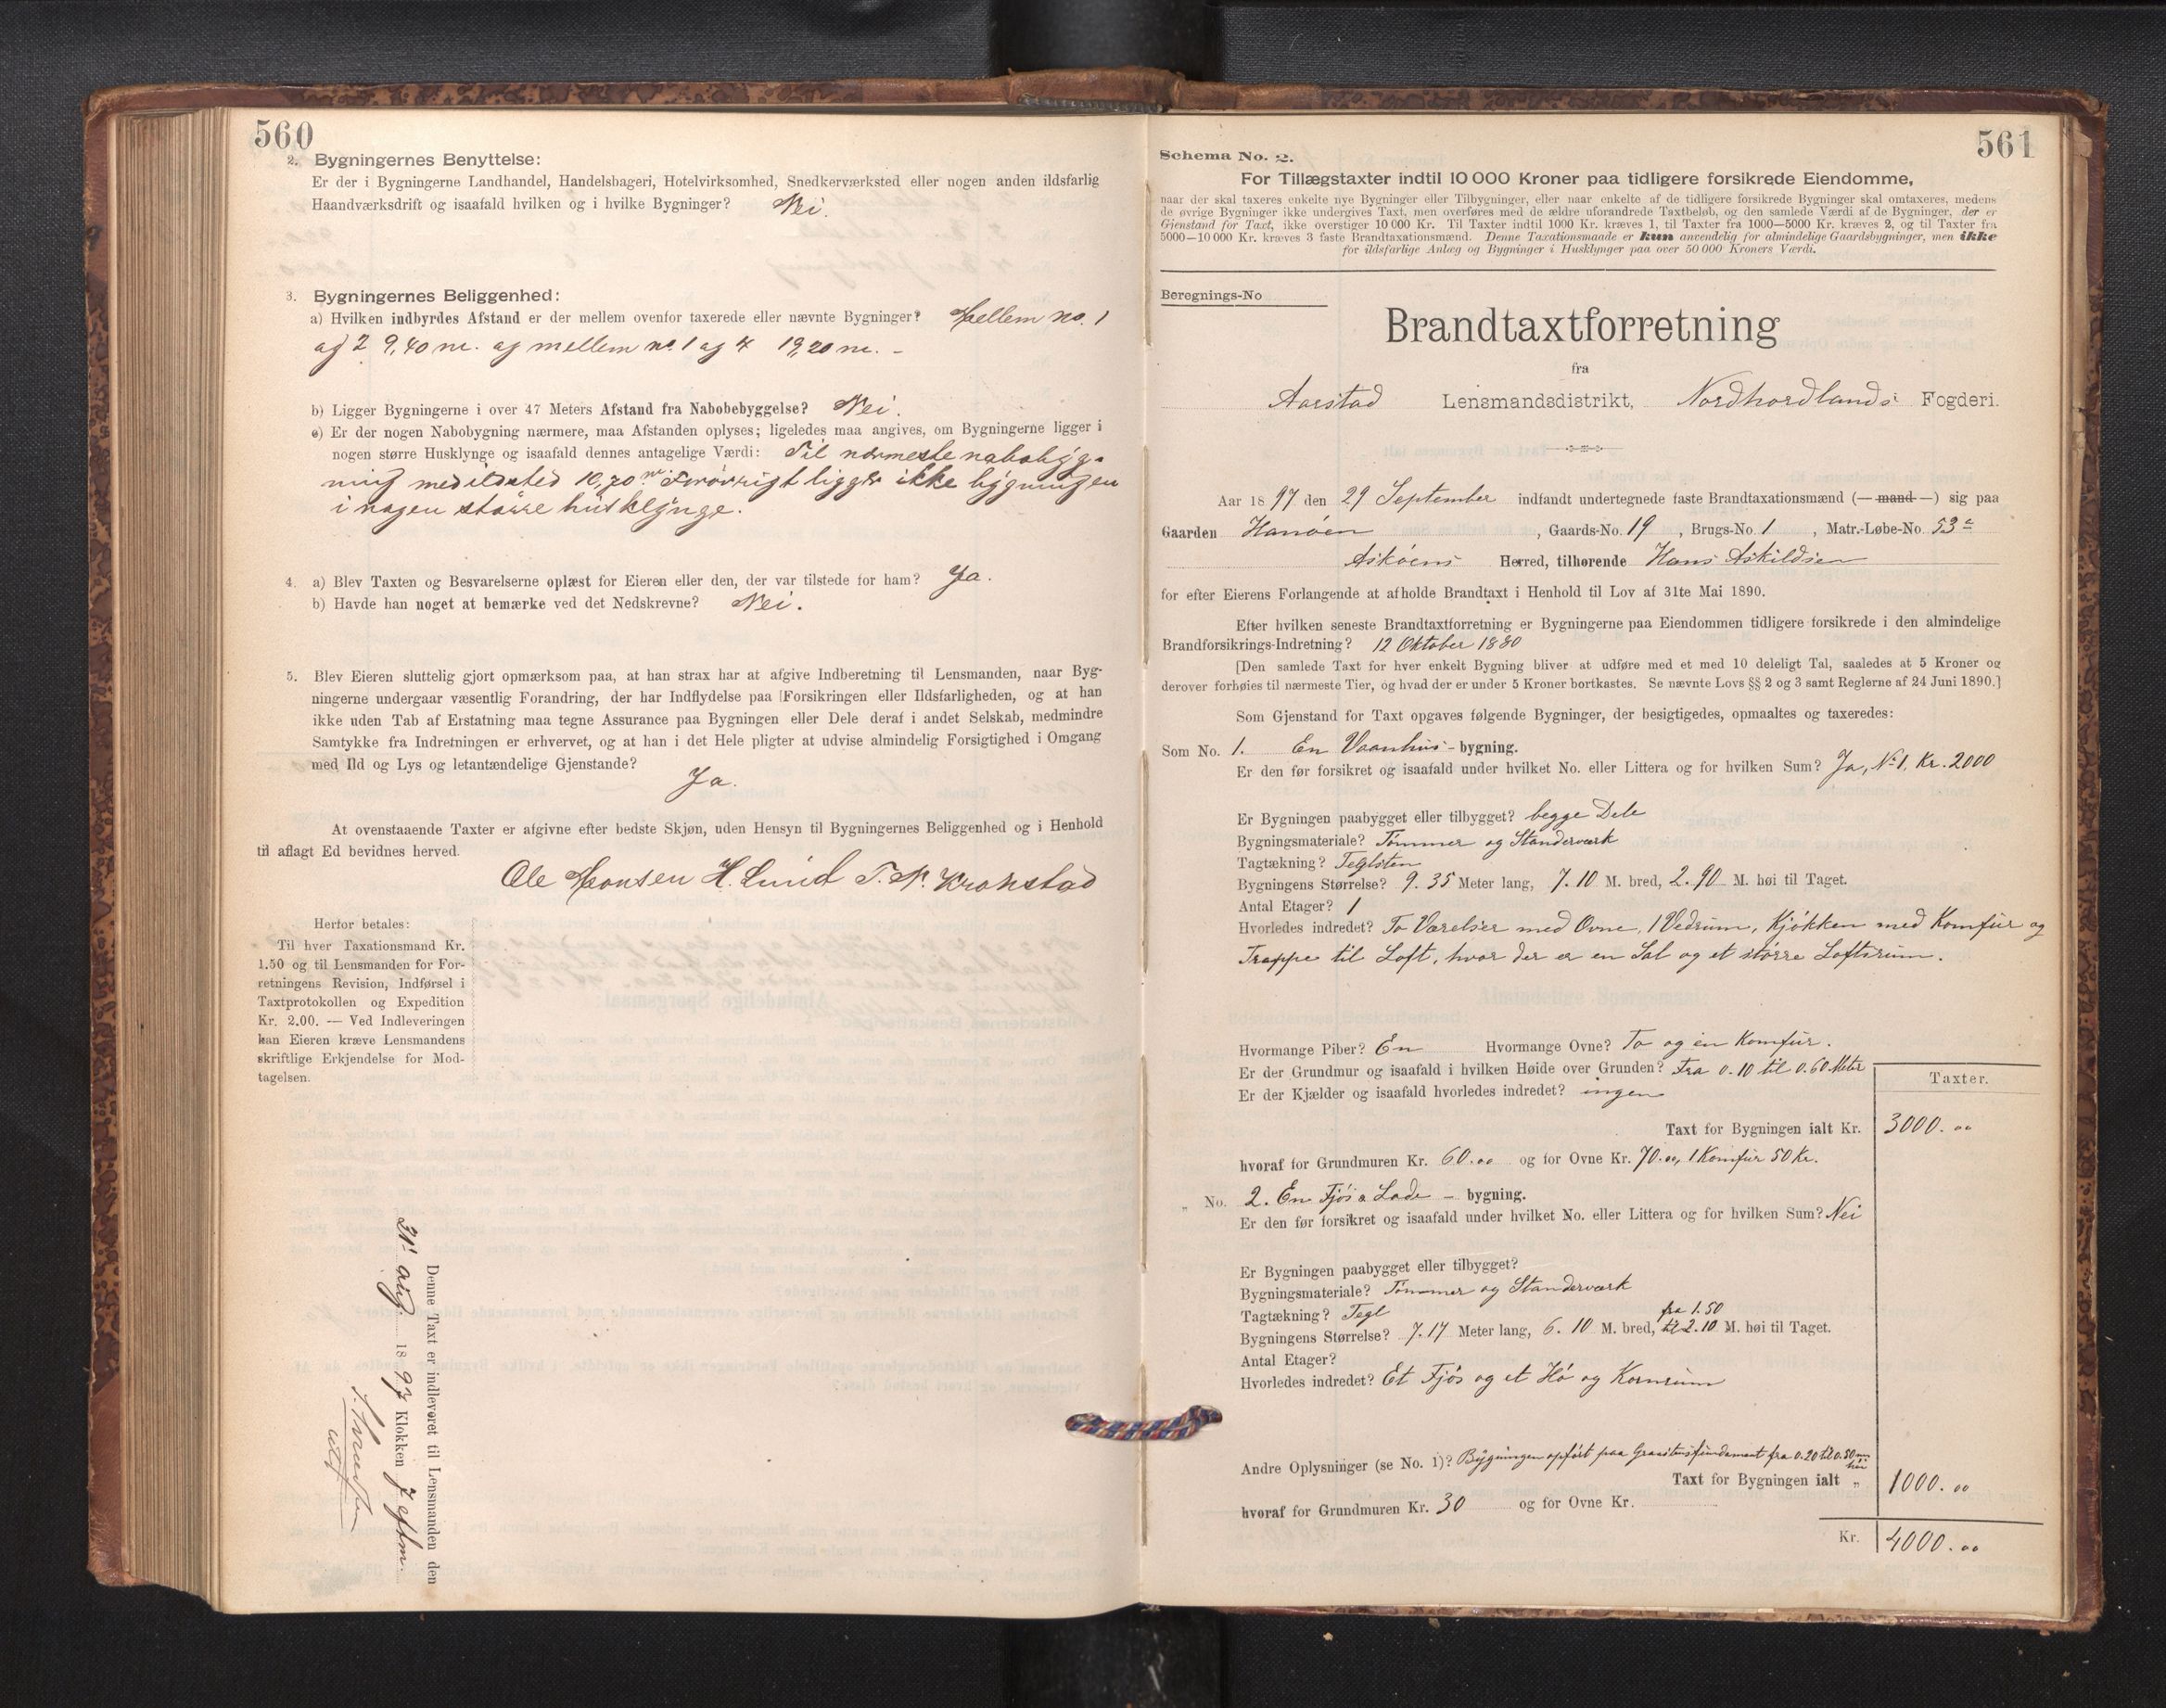 560
2. Bygningernes Benyttelse:
Er der i Bygningerne Landhandel, Handelsbageri, Hotelvirksomhed, Snedkerværksted eller nogen anden ildsfarlig
Haandværksdrift og isaafald hvilken og i hvilke Bygninger? Nei.
3. Bygningernes Beliggenhed:
a) Hvilken indbyrdes Afstand er der mellem ovenfor taxerede eller nævnte Bygninger? Mellem no. 1
og 2 9,40 m. og mellem no. 1 og 4 19,20 m. –
b) Ligger Bygningerne i over 47 Meters Afstand fra Nabobebyggelse? Nei.
c) Er der nogen Nabobygning nærmere, maa Afstanden oplyses; ligeledes maa angives, om Bygningerne ligger i
nogen større Husklynge og isaafald dennes antagelige Værdi: Til nærmeste nabobyg-
ning med ildsted 10,70 m. Forøvrigt ligger ikke bygningen
i nogen større husklynge.
4. a) Blev Taxten og Besvarelserne oplæst for Eieren eller den, der var tilstede for ham? Ja.
b) Havde han noget at bemærke ved det Nedskrevne? Nei.
5. Blev Eieren sluttelig gjort opmærksom paa, at han strax har at afgive Indberetning til Lensmanden, naar Byg-
ningerne undergaar væsentlig Forandring, der har Indflydelse paa Forsikringen eller Ildsfarligheden, og at han
ikke uden Tab af Erstatning maa tegne Assurance paa Bygningen eller Dele deraf i andet Selskab, medmindre
Samtykke fra Indretningen er erhvervet, og at han i det Hele pligter at udvise almindelig Forsigtighed i Omgang
med Ild og Lys og letantændelige Gjenstande?
Ja.
At ovenstaaende Taxter er afgivne efter bedste Skjøn, uden Hensyn til Bygningernes Beliggenhed og i Henhold
til aflagt Ed bevidnes herved.
Ole Monsen H. Lund T. N. Kronstad
Herfor betales:
Til hver Taxationsmand Kr.
1.50 og til Lensmanden for For-
retningens Revision, Indførsel i
Taxtprotokollen og Expedition
Kr. 2.00. — Ved Indleveringen
kan Eieren kræve Lensmandens
skriftlige Erkjendelse for Mod-
tagelsen.
Denne Taxt er indleveret til Lensmanden den
31' aug. 1897 Klokken 7 eftm.
561
Schema No. 2.
For Tillægstaxter indtil 10 000 Kroner paa tidligere forsikrede Eiendomme,
naar der skal taxeres enkelte nye Bygninger eller Tilbygninger, eller naar enkelte af de tidligere forsikrede Bygninger skal omtaxeres, medens
de øvrige Bygninger ikke undergives Taxt, men overføres med de ældre uforandrede Taxtbeløb, og den samlede Værdi af de Bygninger, der er
Gjenstand for Taxt, ikke overstiger 10 000 Kr. Til Taxter indtil 1000 Kr. kræves 1, til Taxter fra 1000—5000 Kr. kræves 2, og til Taxter fra
5000—10 000 Kr. kræves 3 faste Brandtaxationsmænd. Denne Taxationsmaade er kun anvendelig for almindelige Gaardsbygninger, men ikke
for ildsfarlige Anlæg og Bygninger i Husklynger paa over 50 000 Kroners Værdi.
Beregnings-No
Brandtaxtforretning
fra
Aarstad Lensmandsdistrikt, Nordhordlands Fogderi.
Aar 1897 den 29 September indfandt undertegnede faste Brandtaxationsmænd (— mand —) sig paa
Gaarden Hanöen, Gaards-No. 19, Brugs-No. 1, Matr.-Løbe-No. 53 c
Asköens Herred, tilhørende Hans Askildsen
for efter Eierens Forlangende at afholde Brandtaxt i Henhold til Lov af 31te Mai 1890.
Efter hvilken seneste Brandtaxtforretning er Bygningerne paa Eiendommen tidligere forsikrede i den almindelige
Brandforsikrings-Indretning? 12 Oktober 1880
[Den samlede Taxt for hver enkelt Bygning bliver at udføre med et med 10 deleligt Tal, saaledes at 5 Kroner og
derover forhøies til nærmeste Tier, og hvad der er under 5 Kroner bortkastes. Se nævnte Lovs §§ 2 og 3 samt Reglerne af 24 Juni 1890.]
Som Gjenstand for Taxt opgaves følgende Bygninger, der besigtigedes, opmaaltes og taxeredes:
Som No. 1. En Vaanhus - bygning.
Er den før forsikret og isaafald under hvilket No. eller Littera og for hvilken Sum? Ja, No 1, Kr. 2000
Er Bygningen paabygget eller tilbygget? begge Dele
Bygningsmateriale? Tömmer og Standerværk
Tagtækning? Teglsten
Bygningens Størrelse? 9.35 Meter lang, 7.10 M. bred, 2.90 M. høi til Taget.
Antal Etager? 1
Hvorledes indredet? To Værelser med Ovne, 1 Vedrum, Kjökken med Komfur og
Trappe til Loft, hvor der er en Sal og et större Loftsrum.
Hvormange Piber? En Hvormange Ovne? To og en Komfur.
Er der Grundmur og isaafald i hvilken Høide over Grunden? Fra 0.10 til 0.60 Meter
Er der Kjælder og isaafald hvorledes indredet? ingen
Taxter.
Taxt for Bygningen ialt Kr. 3000.00
hvoraf for Grundmuren Kr. 60.00 og for Ovne Kr. 70.00, 1 Komfur 50 Kr.
„ No. 2. En Fjös & Lade - bygning.
Er den før forsikret og isaafald under hvilket No. eller Littera og for hvilken Sum? Nei
Er Bygningen paabygget eller tilbygget?
Bygningsmateriale? Tömmer og Standerværk
Tagtækning? Tegl
Bygningens Størrelse? 7.17 Meter lang, 6.10 M. bred, fra 1.50 til 2.10 M. høi til Taget.
Antal Etager?
Hvorledes indredet? Et Fjös og et Hö og Kornrum
Andre Oplysninger (se No. 1)? Bygningen opfört paa Graastensfundament fra 0.20 til 0.50 m høi
Taxt for Bygningen ialt „ 1000.00
hvoraf for Grundmuren Kr. 30 og for Ovne Kr.
Kr. 4000.00